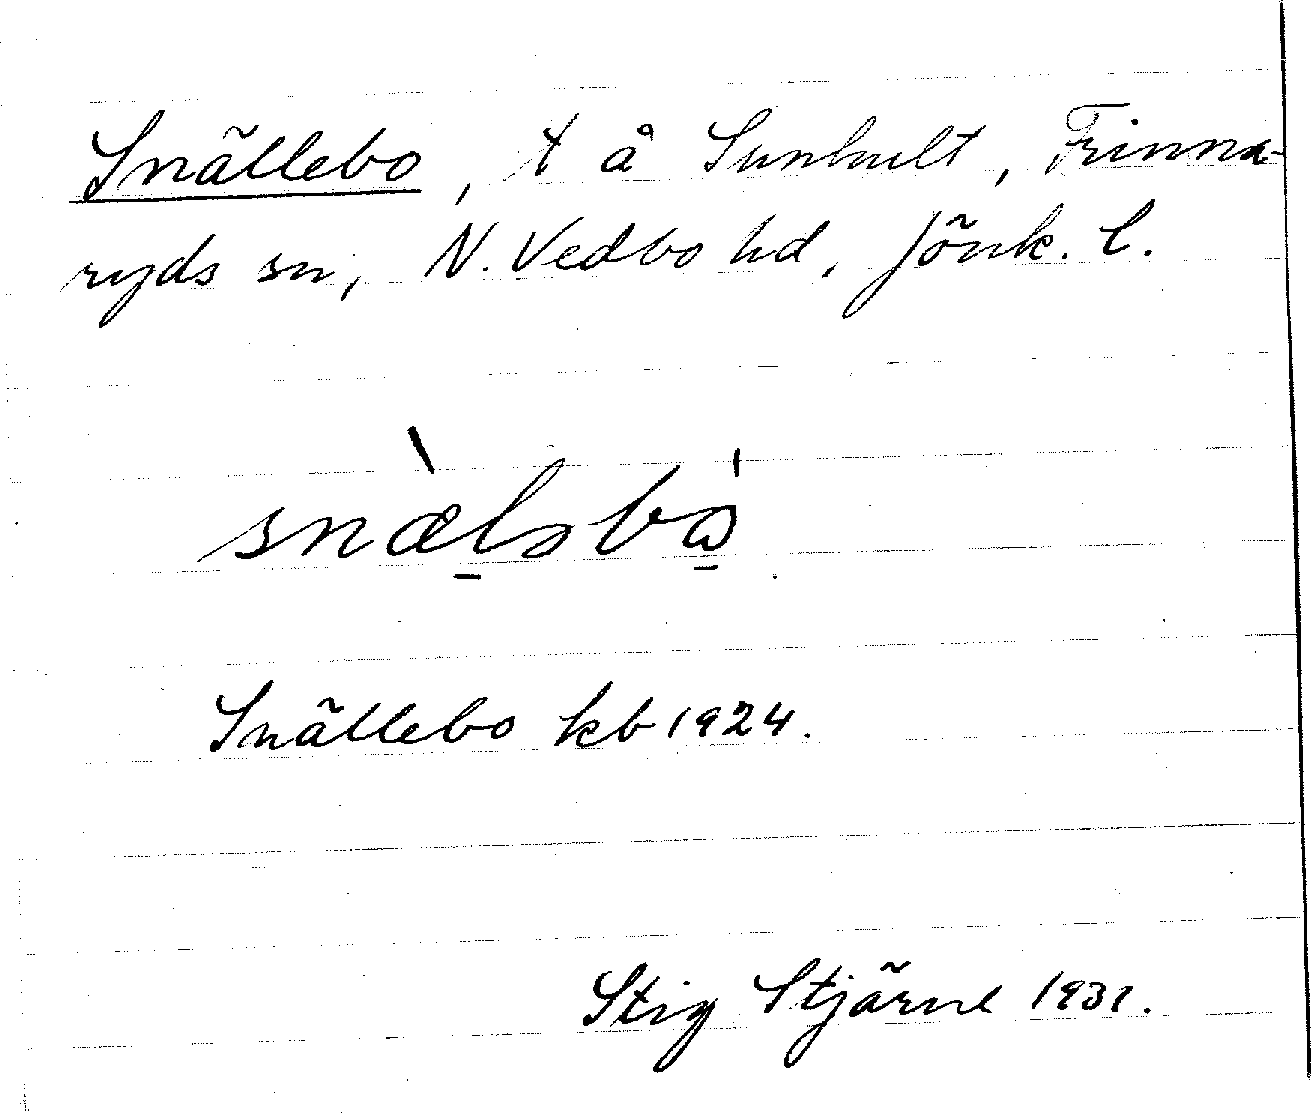 Snällebo, t å Sunhult, Frinna-
ryds sn, N. Vedbo hd, Jönk. l.
snæ̀ləbω̇
Snällebo kb 1924.
Stig Stjärne 1931.